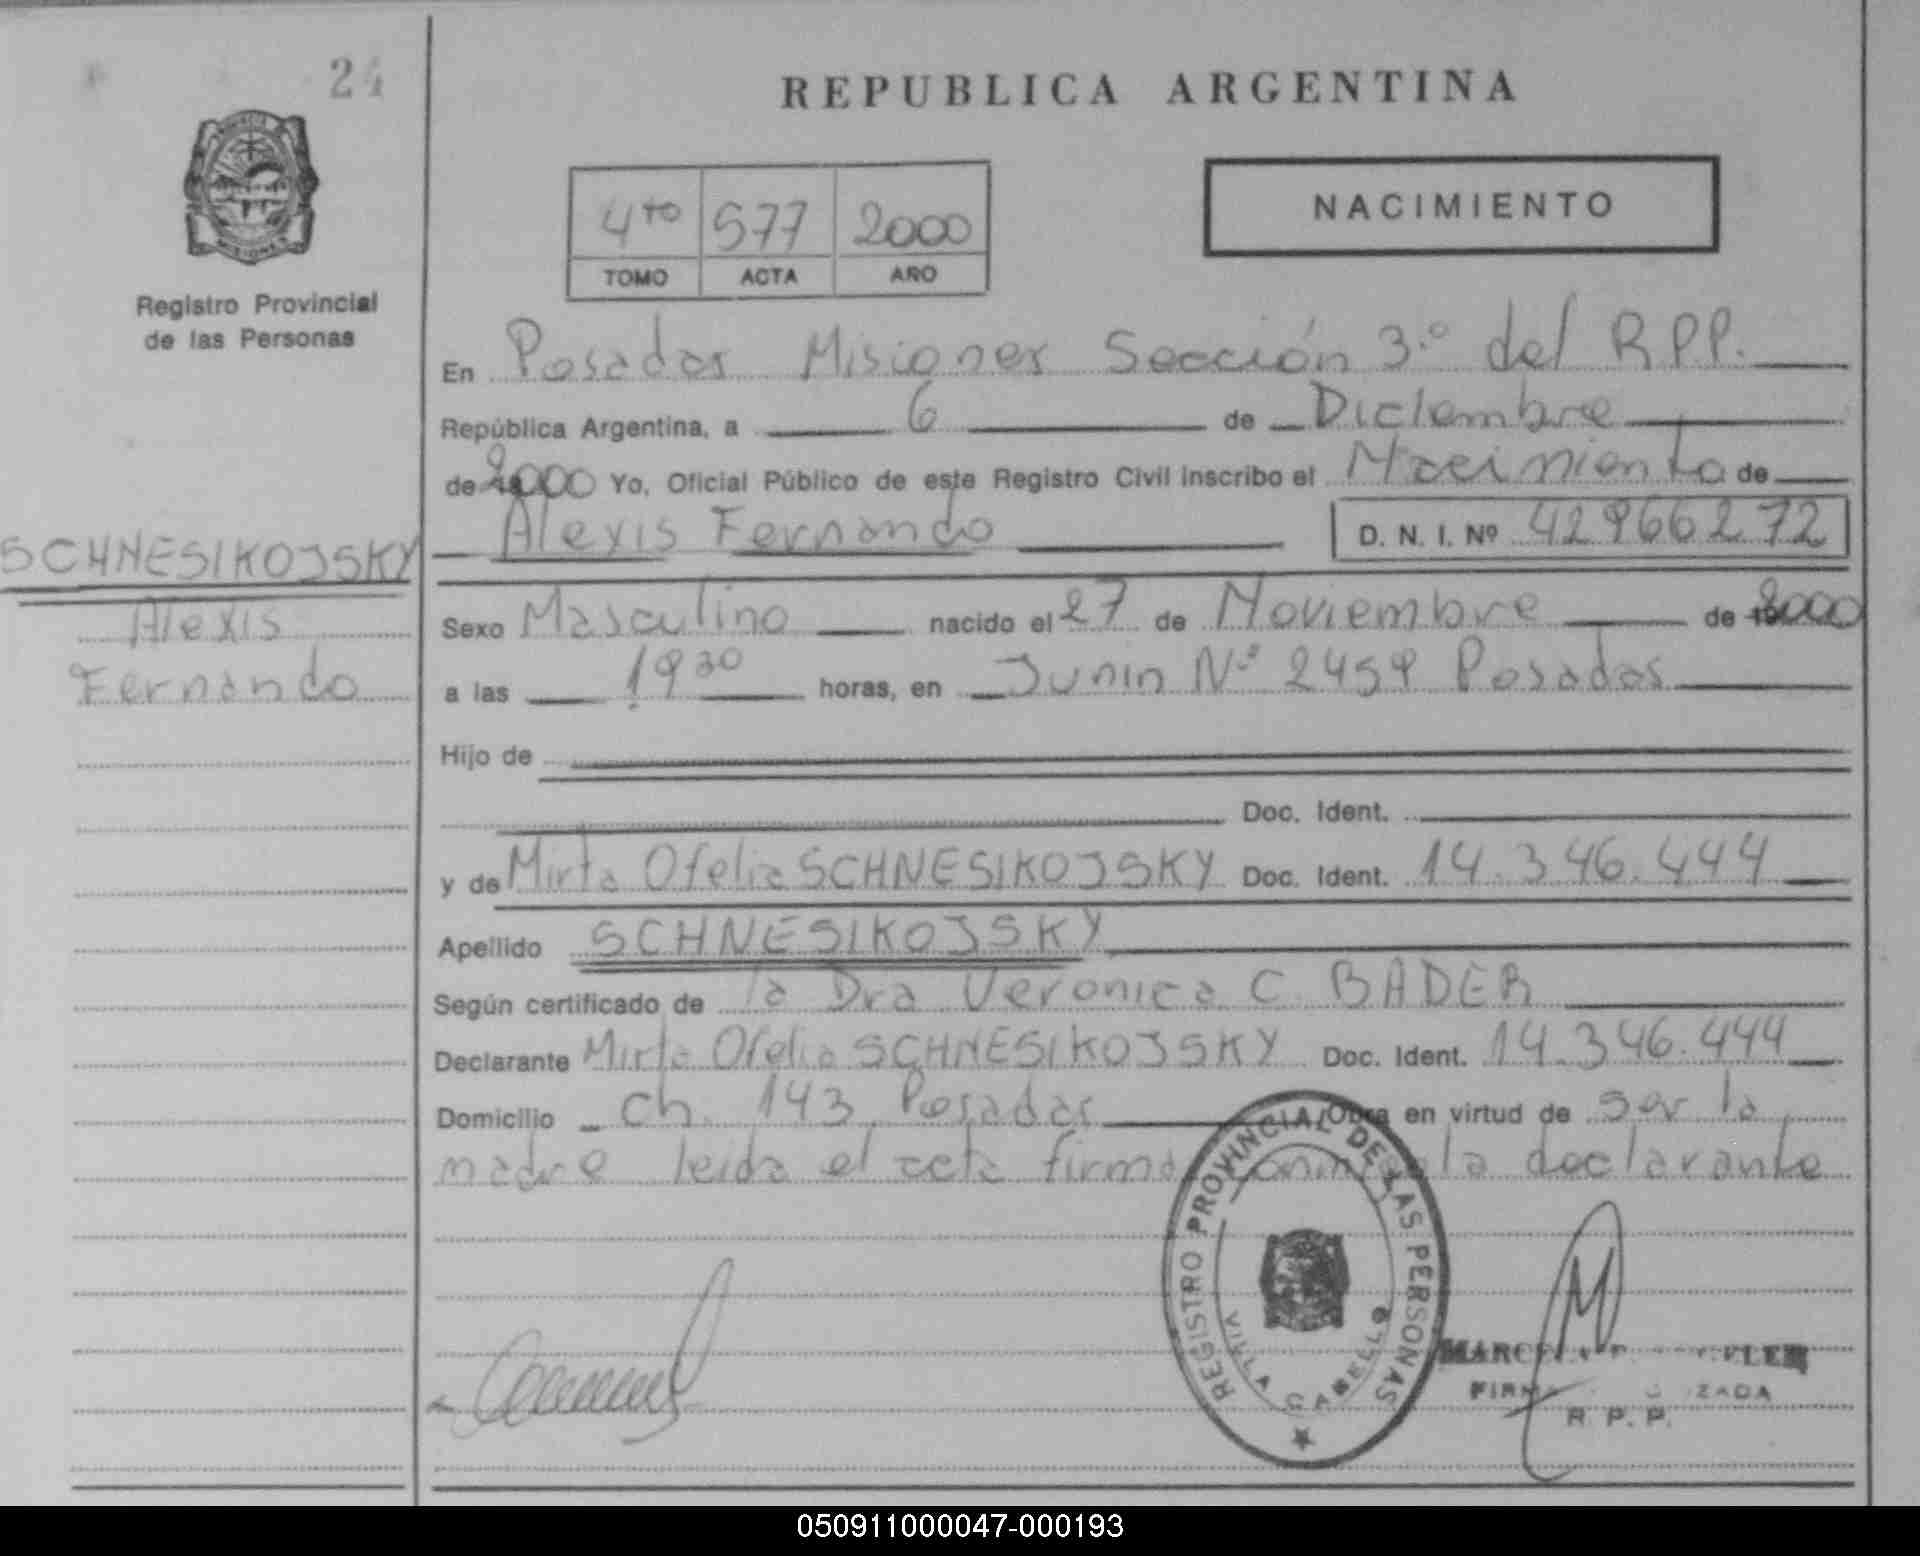 24
REPUBLICA ARGENTINA
4to 577 2000
TOMO ACTA AÑO
NACIMIENTO
Registro Provincial
de las Personas
En Posadas Misiones Sección 3.º del R.P.P.
República Argentina, a 6 de Diciembre
de 2000 Yo, Oficial Público de este Registro Civil inscribo el Nacimiento de
Alexis Fernando D. N. I. Nº 42966272
SCHNESIKOJSKY
Alexis
Fernando
Sexo Masculino nacido el 27 de Noviembre de 2000
a las 19 30 horas, en Junin Nº 2459 Posadas
Hijo de
Doc. Ident.
y de Mirta Ofelia SCHNESIKOJSKY Doc. Ident. 14.346.444
Apellido SCHNESIKOJSKY
Según certificado de la Dra Veronica C. BADER
Declarante Mirta Ofelia SCHNESIKOJSKY Doc. Ident. 14.346.444
Domicilio ch. 143 Posadas Obra en virtud de ser la
madre leida el acta firma la declarante
REGISTRO PROVINCIAL DE LAS PERSONAS
VILLA CABELLO
R. P. P.
050911000047-000193